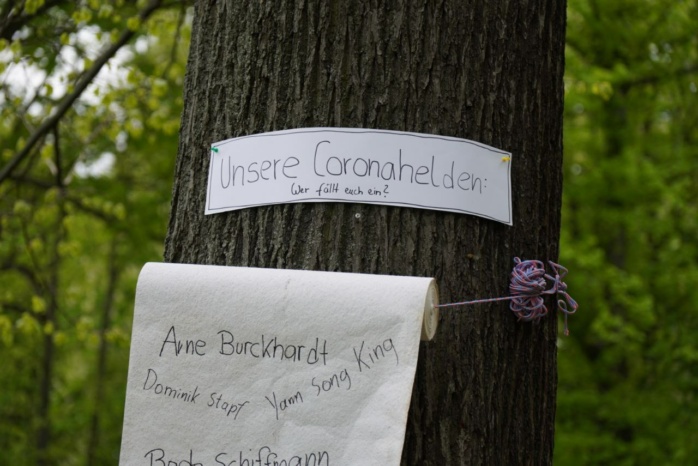 Unsere Coronahelden:
Wer fällt euch ein?
Arne Burckhardt
Dominik Stapf Yann Song King
Bodo Schiffmann